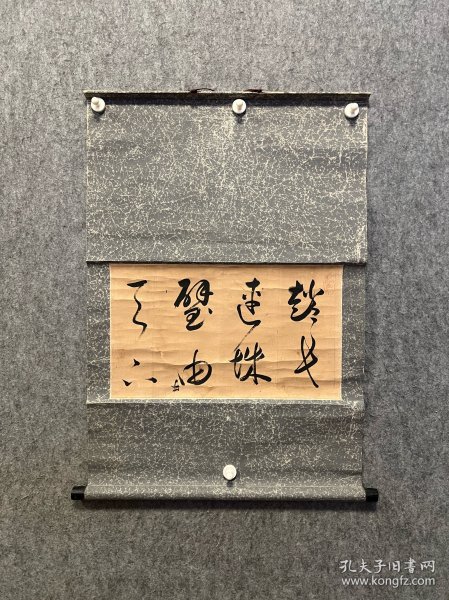 趙氏
連城
璧由
天下
孔夫子旧书网
www.kongfz.com